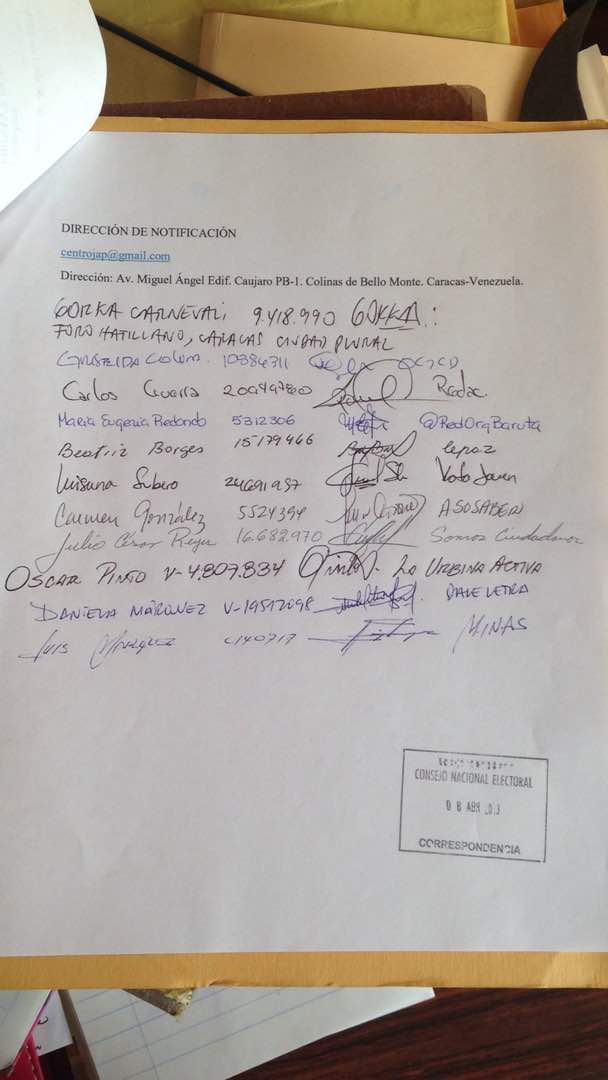 DIRECCIÓN DE NOTIFICACIÓN
centrojap@gmail.com
Dirección: Av. Miguel Ángel Edif. Caujaro PB-1. Colinas de Bello Monte. Caracas-Venezuela.
GORKA CARNEVALI 9.418.990 GORKA
FORO HATILLANO, CARACAS CIUDAD PLURAL
10884311
Carlos Guerra 20049780 Redac.
Maria Eugenia Redondo 5312306 @RedOrgBaruta
Beatriz Borges 15179466 Cepaz
Luisana Subero 24691957 Voto Joven
Carmen González 5524394 ASOSABER
Julio César Reyes 16.682.970 Somos Ciudadanos
OSCAR PINTO V-4.807.834 LA URBINA ACTIVA
DANIELA MÁRQUEZ V-19517098 DALE LETRA
Luis MINAS
CONSEJO NACIONAL ELECTORAL
08 ABR
CORRESPONDENCIA